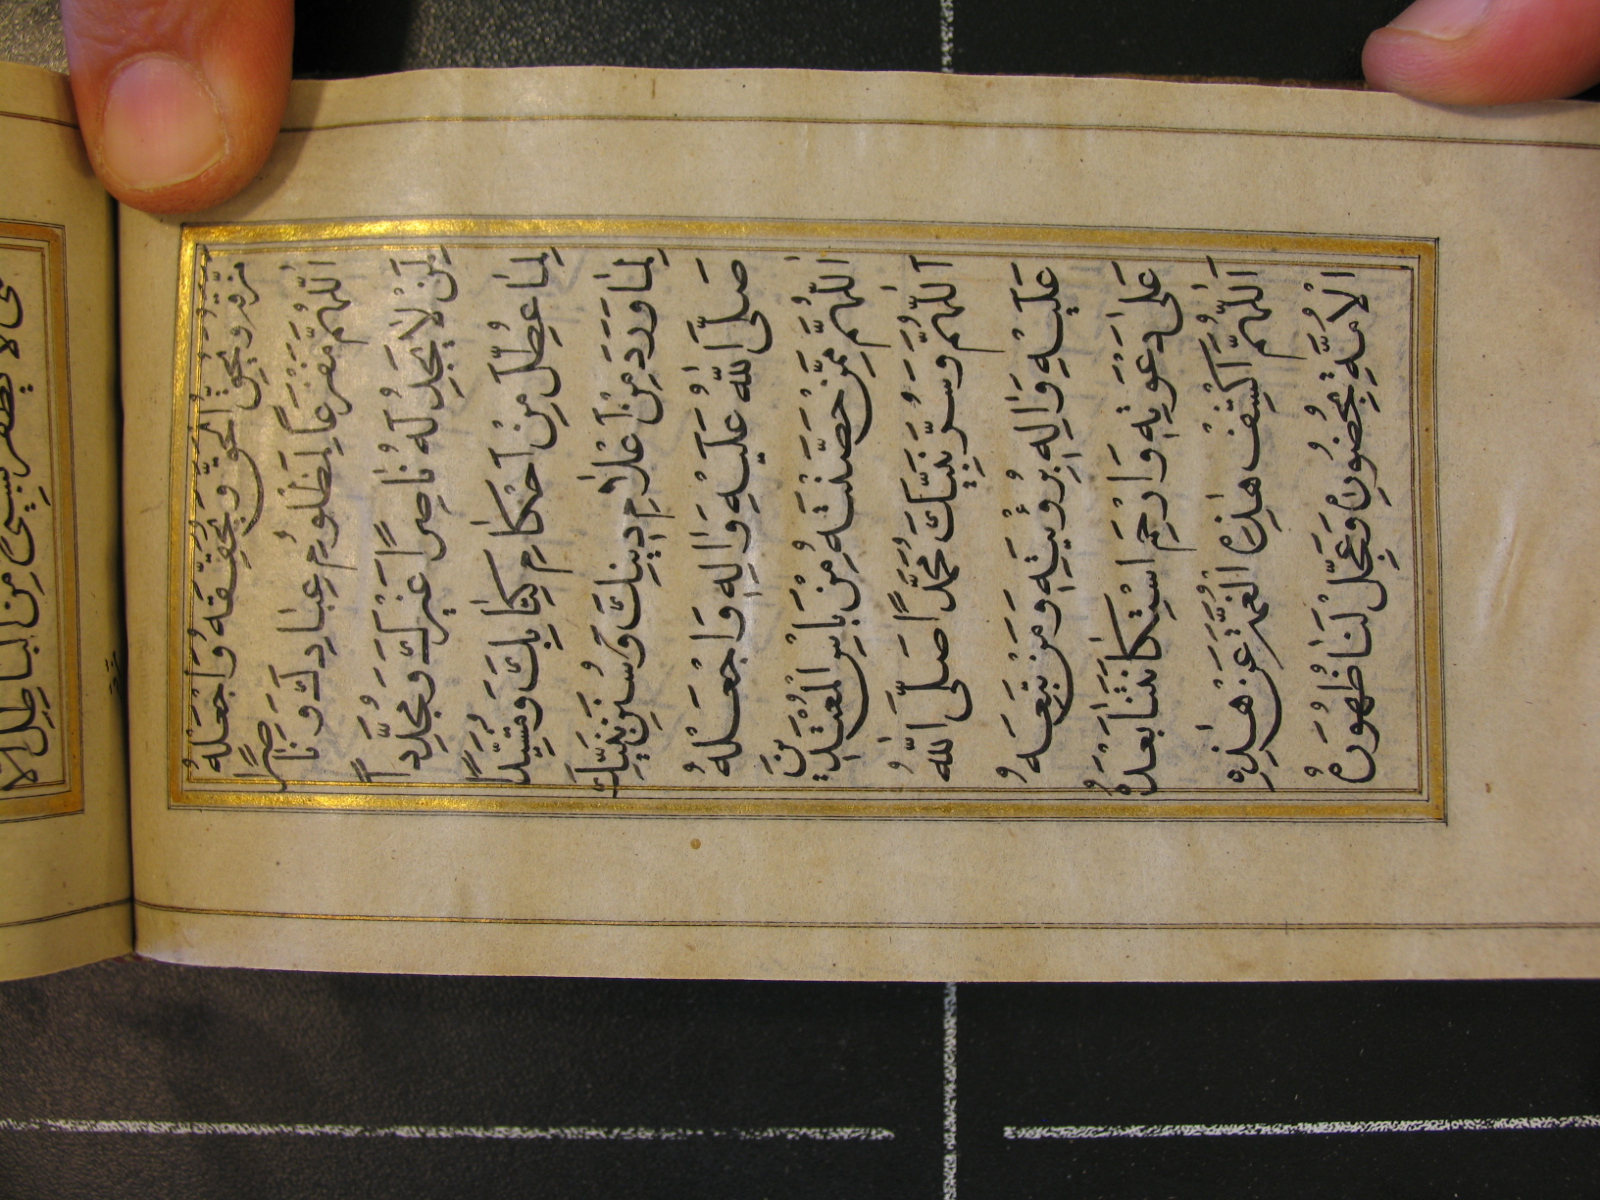 حَتّى لَا يَظْفَرَ بِشَىْءٍ مِنَ الْبَاطِلِ اِلَّا
مزّقه
مَزَّقَهُ وَيُحِقَّ الْحَقَّ وَيُحَقِّقَهُ وَاجْعَلْهُ
اَللّٰهُمَّ مَفْزَعًا لِمَظْلُومِ عِبَادِكَ وَنَاصِرًا
لِمَنْ لَا يَجِدُ لَهُ نَاصِرًا غَيْرَكَ وَمُجَدِّدًا
لِمَا عُطِّلَ مِنْ اَحْكَامِ كِتَابِكَ وَمُشَيِّدًا
لِمَا وَرَدَ مِنْ اَعْلَامِ دِينِكَ وَسُنَنِ نَبِيِّكَ
صَلَّى اللّٰهُ عَلَيْهِ وَاٰلِهِ وَاجْعَلْهُ
اَللّٰهُمَّ مِمَّنْ حَصَّنْتَهُ مِنْ بَاْسِ الْمُعْتَدِينَ
اَللّٰهُمَّ وَسُرَّ نَبِيَّكَ مُحَمَّدًا صَلَّى اللّٰهُ
عَلَيْهِ وَاٰلِهِ بِرُؤْيَتِهِ وَمَنْ تَبِعَهُ
عَلٰى دَعْوَتِهِ وَارْحَمِ اسْتِكَانَتَنَا بَعْدَهُ
اَللّٰهُمَّ اكْشِفْ هٰذِهِ الْغُمَّةَ عَنْ هٰذِهِ
الْاُمَّةِ بِحُضُورِهِ وَعَجِّلْ لَنَا ظُهُورَهُ